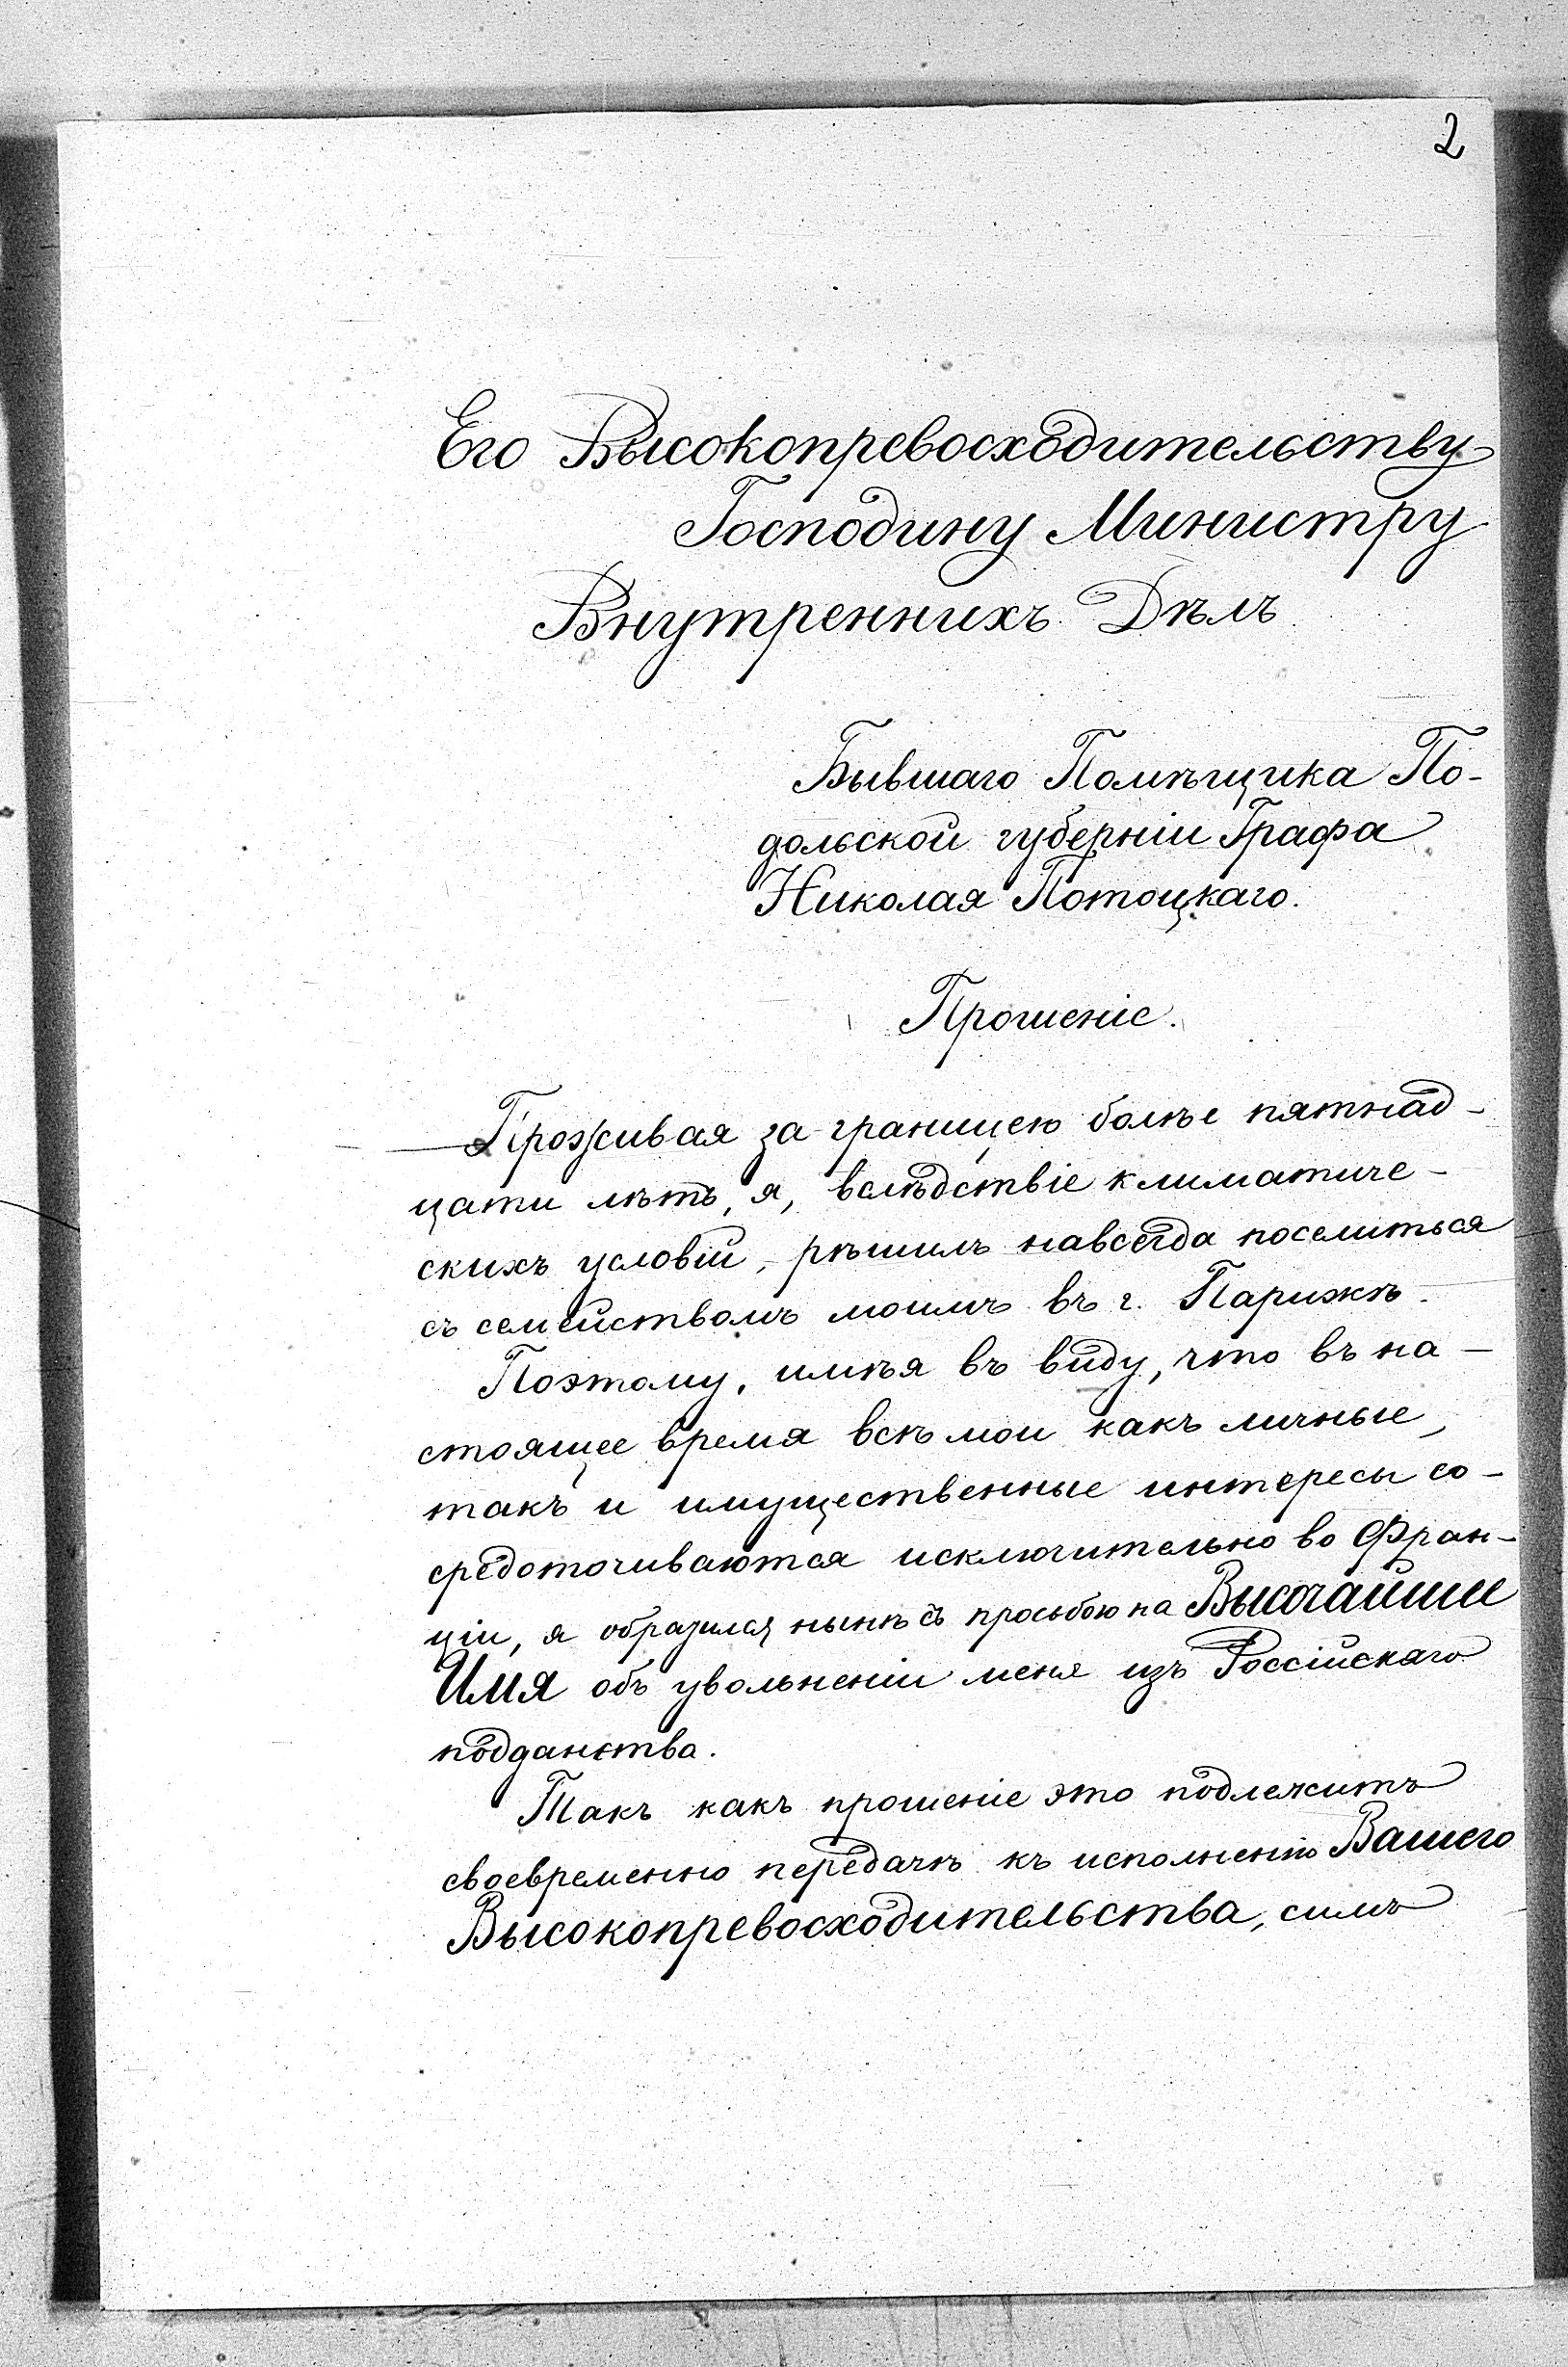 2
Его Высокопревосходительству
Господину Министру
Внутреннихъ Дѣлъ
Бывшаго Помѣщика По-
дольской губерніи Графа
Николая Потоцкаго.
Прошеніе.
Проживая за границею болѣе пятнад-
цати лѣтъ, я, вслѣдствіе климатиче-
скихъ условій, рѣшилъ навсегда поселиться
съ семействомъ моимъ въ г. Парижѣ.
Поэтому, имѣя въ виду, что въ на-
стоящее время всѣ мои какъ личные,
такъ и имущественные интересы со-
средоточиваются исключительно во Фран-
ціи, я обратился нынѣ съ просьбою на Высочайшее
Имя объ увольненіи меня изъ Россійскаго
подданства.
Такъ какъ прошеніе это подлежитъ
своевременно передачѣ къ исполненію Вашего
Высокопревосходительства, симъ